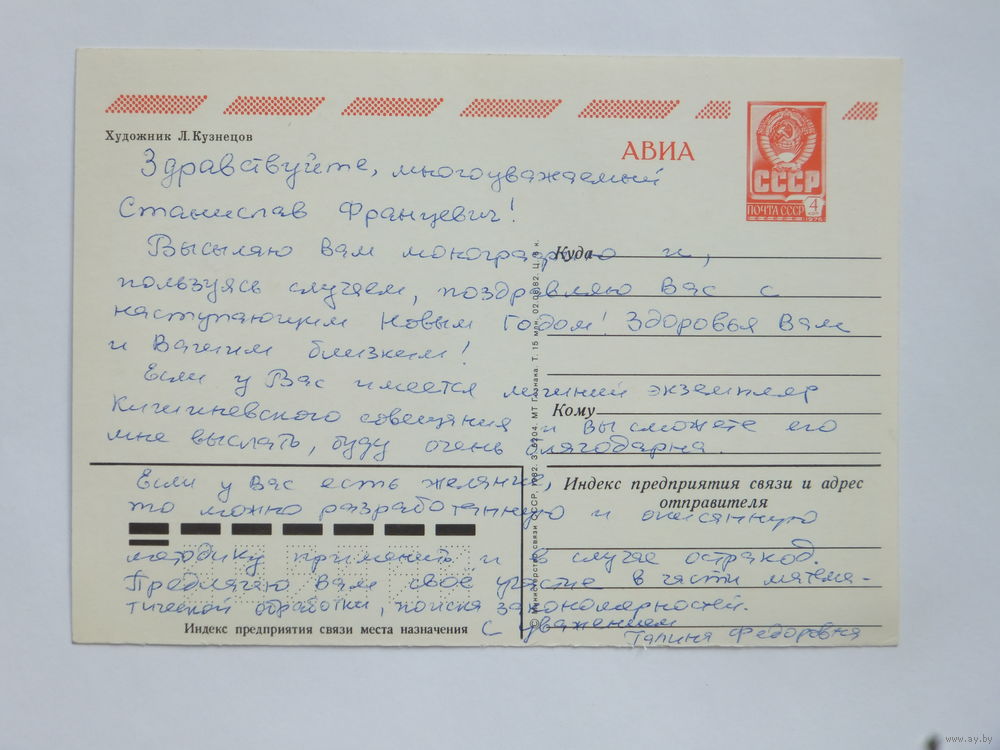 Художник Л. Кузнецов
АВИА
СССР
ПОЧТА СССР
4
1976
Здравствуйте, многоуважаемый
Станислав Францевич!
Высылаю Вам монографию и,
пользуясь случаем, поздравляю Вас с
наступающим Новым Годом! Здоровья Вам
и Вашим близким!
Если у Вас имеется лишний экземпляр
Кишиневского совещания и Вы сможете его
мне выслать, буду очень благодарна.
Если у Вас есть желание,
то можно разработанную и описанную
методику применить и в случае остракод.
Предлагаю Вам своё участие в части матема-
тической обработки, поиска закономерностей.
С уважением
Галина Федоровна
Куда
Кому
Индекс предприятия связи и адрес
отправителя
Индекс предприятия связи места назначения
© Министерство связи СССР, 1982. З. 6204. МТ Гознака. Т. 15 млн. 02.08.82. Ц. 5 к.
www.ay.by